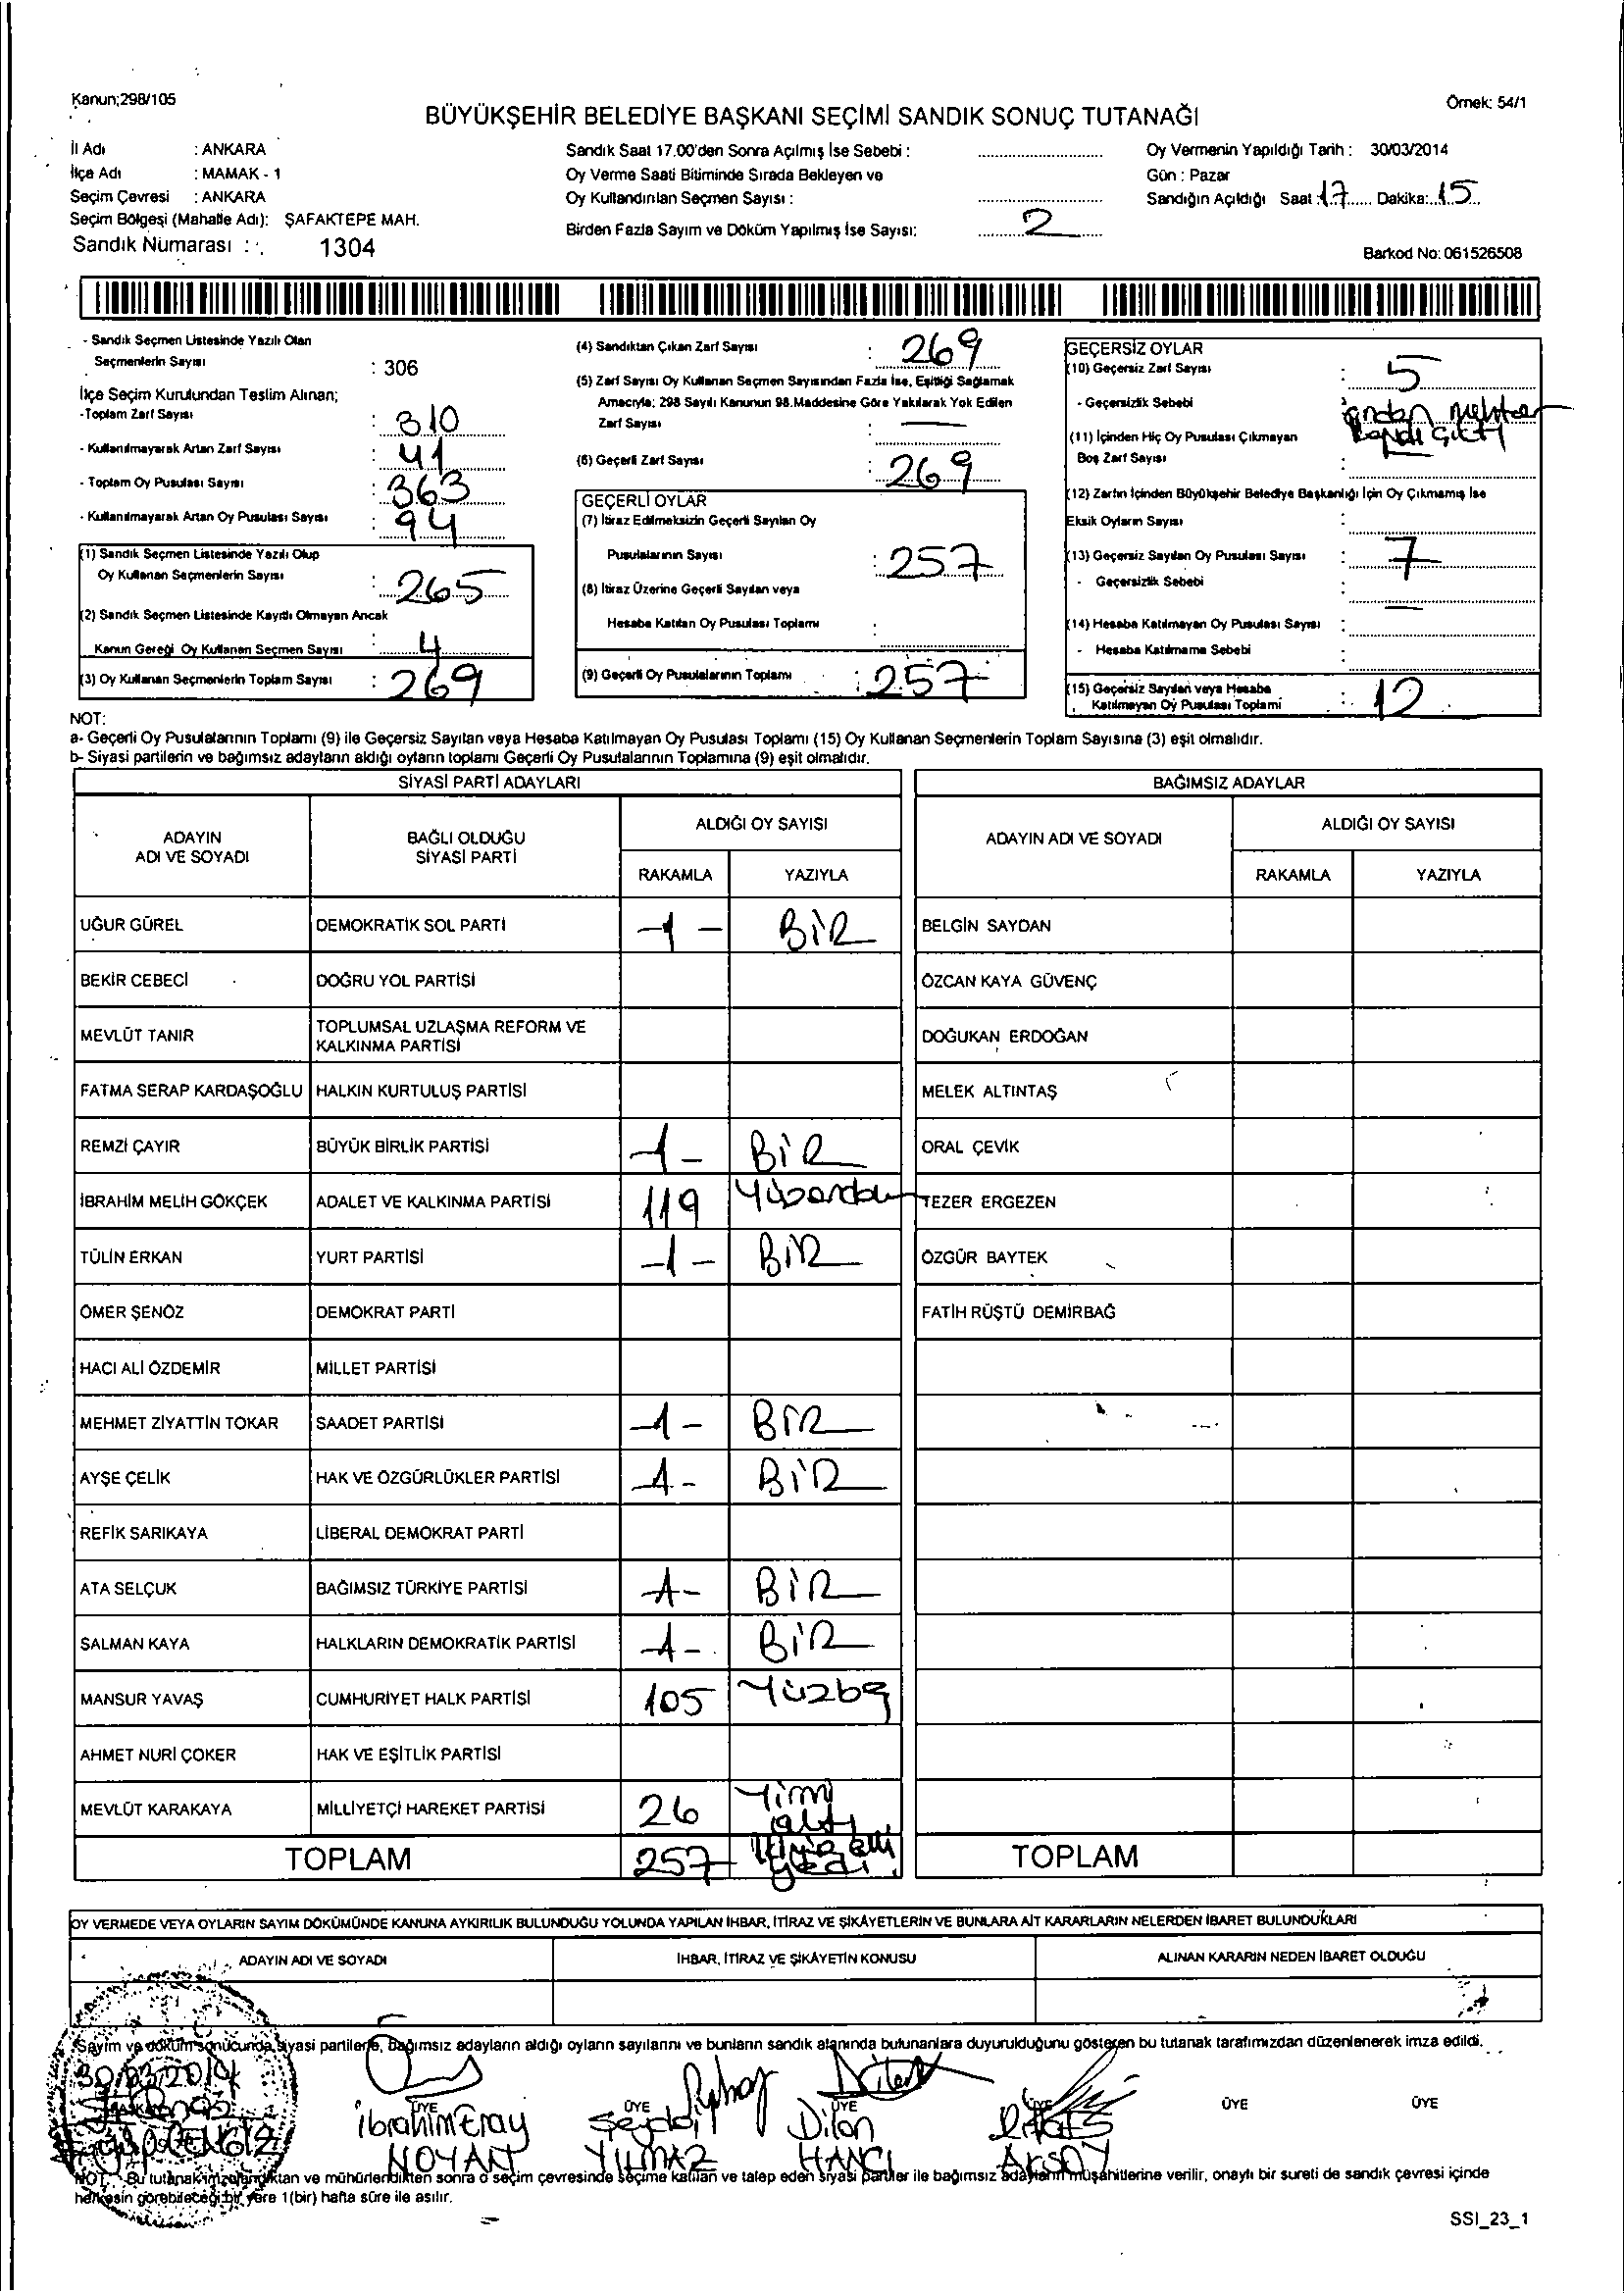 Kanun;298/105
Örnek: 54/1
BÜYÜKŞEHİR BELEDİYE BAŞKANI SEÇİMİ SANDIK SONUÇ TUTANAĞI
İl Adı : ANKARA
İlçe Adı : MAMAK - 1
Seçim Çevresi : ANKARA
Seçim Bölgesi (Mahalle Adı): ŞAFAKTEPE MAH.
Sandık Numarası : 1304
Sandık Saat 17.00'den Sonra Açılmış İse Sebebi :
Oy Verme Saati Bitiminde Sırada Bekleyen ve
Oy Kullandırılan Seçmen Sayısı :
Birden Fazla Sayım ve Döküm Yapılmış İse Sayısı: 2
Oy Vermenin Yapıldığı Tarih : 30/03/2014
Gün : Pazar
Sandığın Açıldığı Saat : 17 Dakika: 15
Barkod No: 061526508
- Sandık Seçmen Listesinde Yazılı Olan
Seçmenlerin Sayısı : 306
İlçe Seçim Kurulundan Teslim Alınan;
-Toplam Zarf Sayısı : 310
- Kullanılmayarak Artan Zarf Sayısı : 41
- Toplam Oy Pusulası Sayısı : 363
- Kullanılmayarak Artan Oy Pusulası Sayısı : 94
(1) Sandık Seçmen Listesinde Yazılı Olup
Oy Kullanan Seçmenlerin Sayısı : 265
(2) Sandık Seçmen Listesinde Kayıtlı Olmayan Ancak
Kanun Gereği Oy Kullanan Seçmen Sayısı : 4
(3) Oy Kullanan Seçmenlerin Toplam Sayısı : 269
(4) Sandıktan Çıkan Zarf Sayısı : 269
(5) Zarf Sayısı Oy Kullanan Seçmen Sayısından Fazla İse, Eşitliği Sağlamak
Amacıyla; 298 Sayılı Kanunun 98.Maddesine Göre Yakılarak Yok Edilen
Zarf Sayısı : —
(6) Geçerli Zarf Sayısı : 269
GEÇERLİ OYLAR
(7) İtiraz Edilmeksizin Geçerli Sayılan Oy
Pusulalarının Sayısı : 257
(8) İtiraz Üzerine Geçerli Sayılan veya
Hesaba Katılan Oy Pusulası Toplamı :
(9) Geçerli Oy Pusulalarının Toplamı : 257
GEÇERSİZ OYLAR
(10) Geçersiz Zarf Sayısı : 5
- Geçersizlik Sebebi :
(11) İçinden Hiç Oy Pusulası Çıkmayan
Boş Zarf Sayısı :
(12) Zarfın İçinden Büyükşehir Belediye Başkanlığı İçin Oy Çıkmamış İse
Eksik Oyların Sayısı :
(13) Geçersiz Sayılan Oy Pusulası Sayısı : 7
- Geçersizlik Sebebi : —
(14) Hesaba Katılmayan Oy Pusulası Sayısı :
- Hesaba Katılmama Sebebi :
(15) Geçersiz Sayılan veya Hesaba
Katılmayan Oy Pusulası Toplamı : 12
NOT:
a- Geçerli Oy Pusulalarının Toplamı (9) ile Geçersiz Sayılan veya Hesaba Katılmayan Oy Pusulası Toplamı (15) Oy Kullanan Seçmenlerin Toplam Sayısına (3) eşit olmalıdır.
b- Siyasi partilerin ve bağımsız adayların aldığı oyların toplamı Geçerli Oy Pusulalarının Toplamına (9) eşit olmalıdır.
SİYASİ PARTİ ADAYLARI
ADAYIN ADI VE SOYADI BAĞLI OLDUĞU SİYASİ PARTİ ALDIĞI OY SAYISI
RAKAMLA YAZIYLA
UĞUR GÜREL DEMOKRATİK SOL PARTİ -1- BİR
BEKİR CEBECİ DOĞRU YOL PARTİSİ
MEVLÜT TANIR TOPLUMSAL UZLAŞMA REFORM VE KALKINMA PARTİSİ
FATMA SERAP KARDAŞOĞLU HALKIN KURTULUŞ PARTİSİ
REMZİ ÇAYIR BÜYÜK BİRLİK PARTİSİ -1- BİR
İBRAHİM MELİH GÖKÇEK ADALET VE KALKINMA PARTİSİ 119
TÜLİN ERKAN YURT PARTİSİ -1- BİR
ÖMER ŞENÖZ DEMOKRAT PARTİ
HACI ALİ ÖZDEMİR MİLLET PARTİSİ
MEHMET ZİYATTİN TOKAR SAADET PARTİSİ -1- BİR
AYŞE ÇELİK HAK VE ÖZGÜRLÜKLER PARTİSİ -1- BİR
REFİK SARIKAYA LİBERAL DEMOKRAT PARTİ
ATA SELÇUK BAĞIMSIZ TÜRKİYE PARTİSİ -1- BİR
SALMAN KAYA HALKLARIN DEMOKRATİK PARTİSİ -1- BİR
MANSUR YAVAŞ CUMHURİYET HALK PARTİSİ 105
AHMET NURİ ÇOKER HAK VE EŞİTLİK PARTİSİ
MEVLÜT KARAKAYA MİLLİYETÇİ HAREKET PARTİSİ 26
TOPLAM 257
BAĞIMSIZ ADAYLAR
ADAYIN ADI VE SOYADI ALDIĞI OY SAYISI
RAKAMLA YAZIYLA
BELGİN SAYDAN
ÖZCAN KAYA GÜVENÇ
DOĞUKAN ERDOĞAN
MELEK ALTINTAŞ
ORAL ÇEVİK
TEZER ERGEZEN
ÖZGÜR BAYTEK
FATİH RÜŞTÜ DEMİRBAĞ
TOPLAM
OY VERMEDE VEYA OYLARIN SAYIM DÖKÜMÜNDE KANUNA AYKIRILIK BULUNDUĞU YOLUNDA YAPILAN İHBAR, İTİRAZ VE ŞİKAYETLERİN VE BUNLARA AİT KARARLARIN NELERDEN İBARET BULUNDUKLARI
ADAYIN ADI VE SOYADI İHBAR, İTİRAZ VE ŞİKAYETİN KONUSU ALINAN KARARIN NEDEN İBARET OLDUĞU
Sayım ve döküm sonucunda siyasi partilerle, bağımsız adayların aldığı oyların sayılarını ve bunların sandık alanında bulunanlara duyurulduğunu gösteren bu tutanak tarafımızdan düzenlenerek imza edildi.
30/03/2014
ÜYE ÜYE ÜYE ÜYE ÜYE ÜYE
İbrahim Eray Dilan
NOYAN YILMAZ HANCI AKSOY
NOT: Bu tutanak imzalandıktan ve mühürlendikten sonra o seçim çevresinde seçime katılan ve talep eden siyasi partiler ile bağımsız adayların müşahitlerine verilir, onaylı bir sureti de sandık çevresi içinde
herkesin görebileceği bir yere 1(bir) hafta süre ile asılır.
SSI_23_1